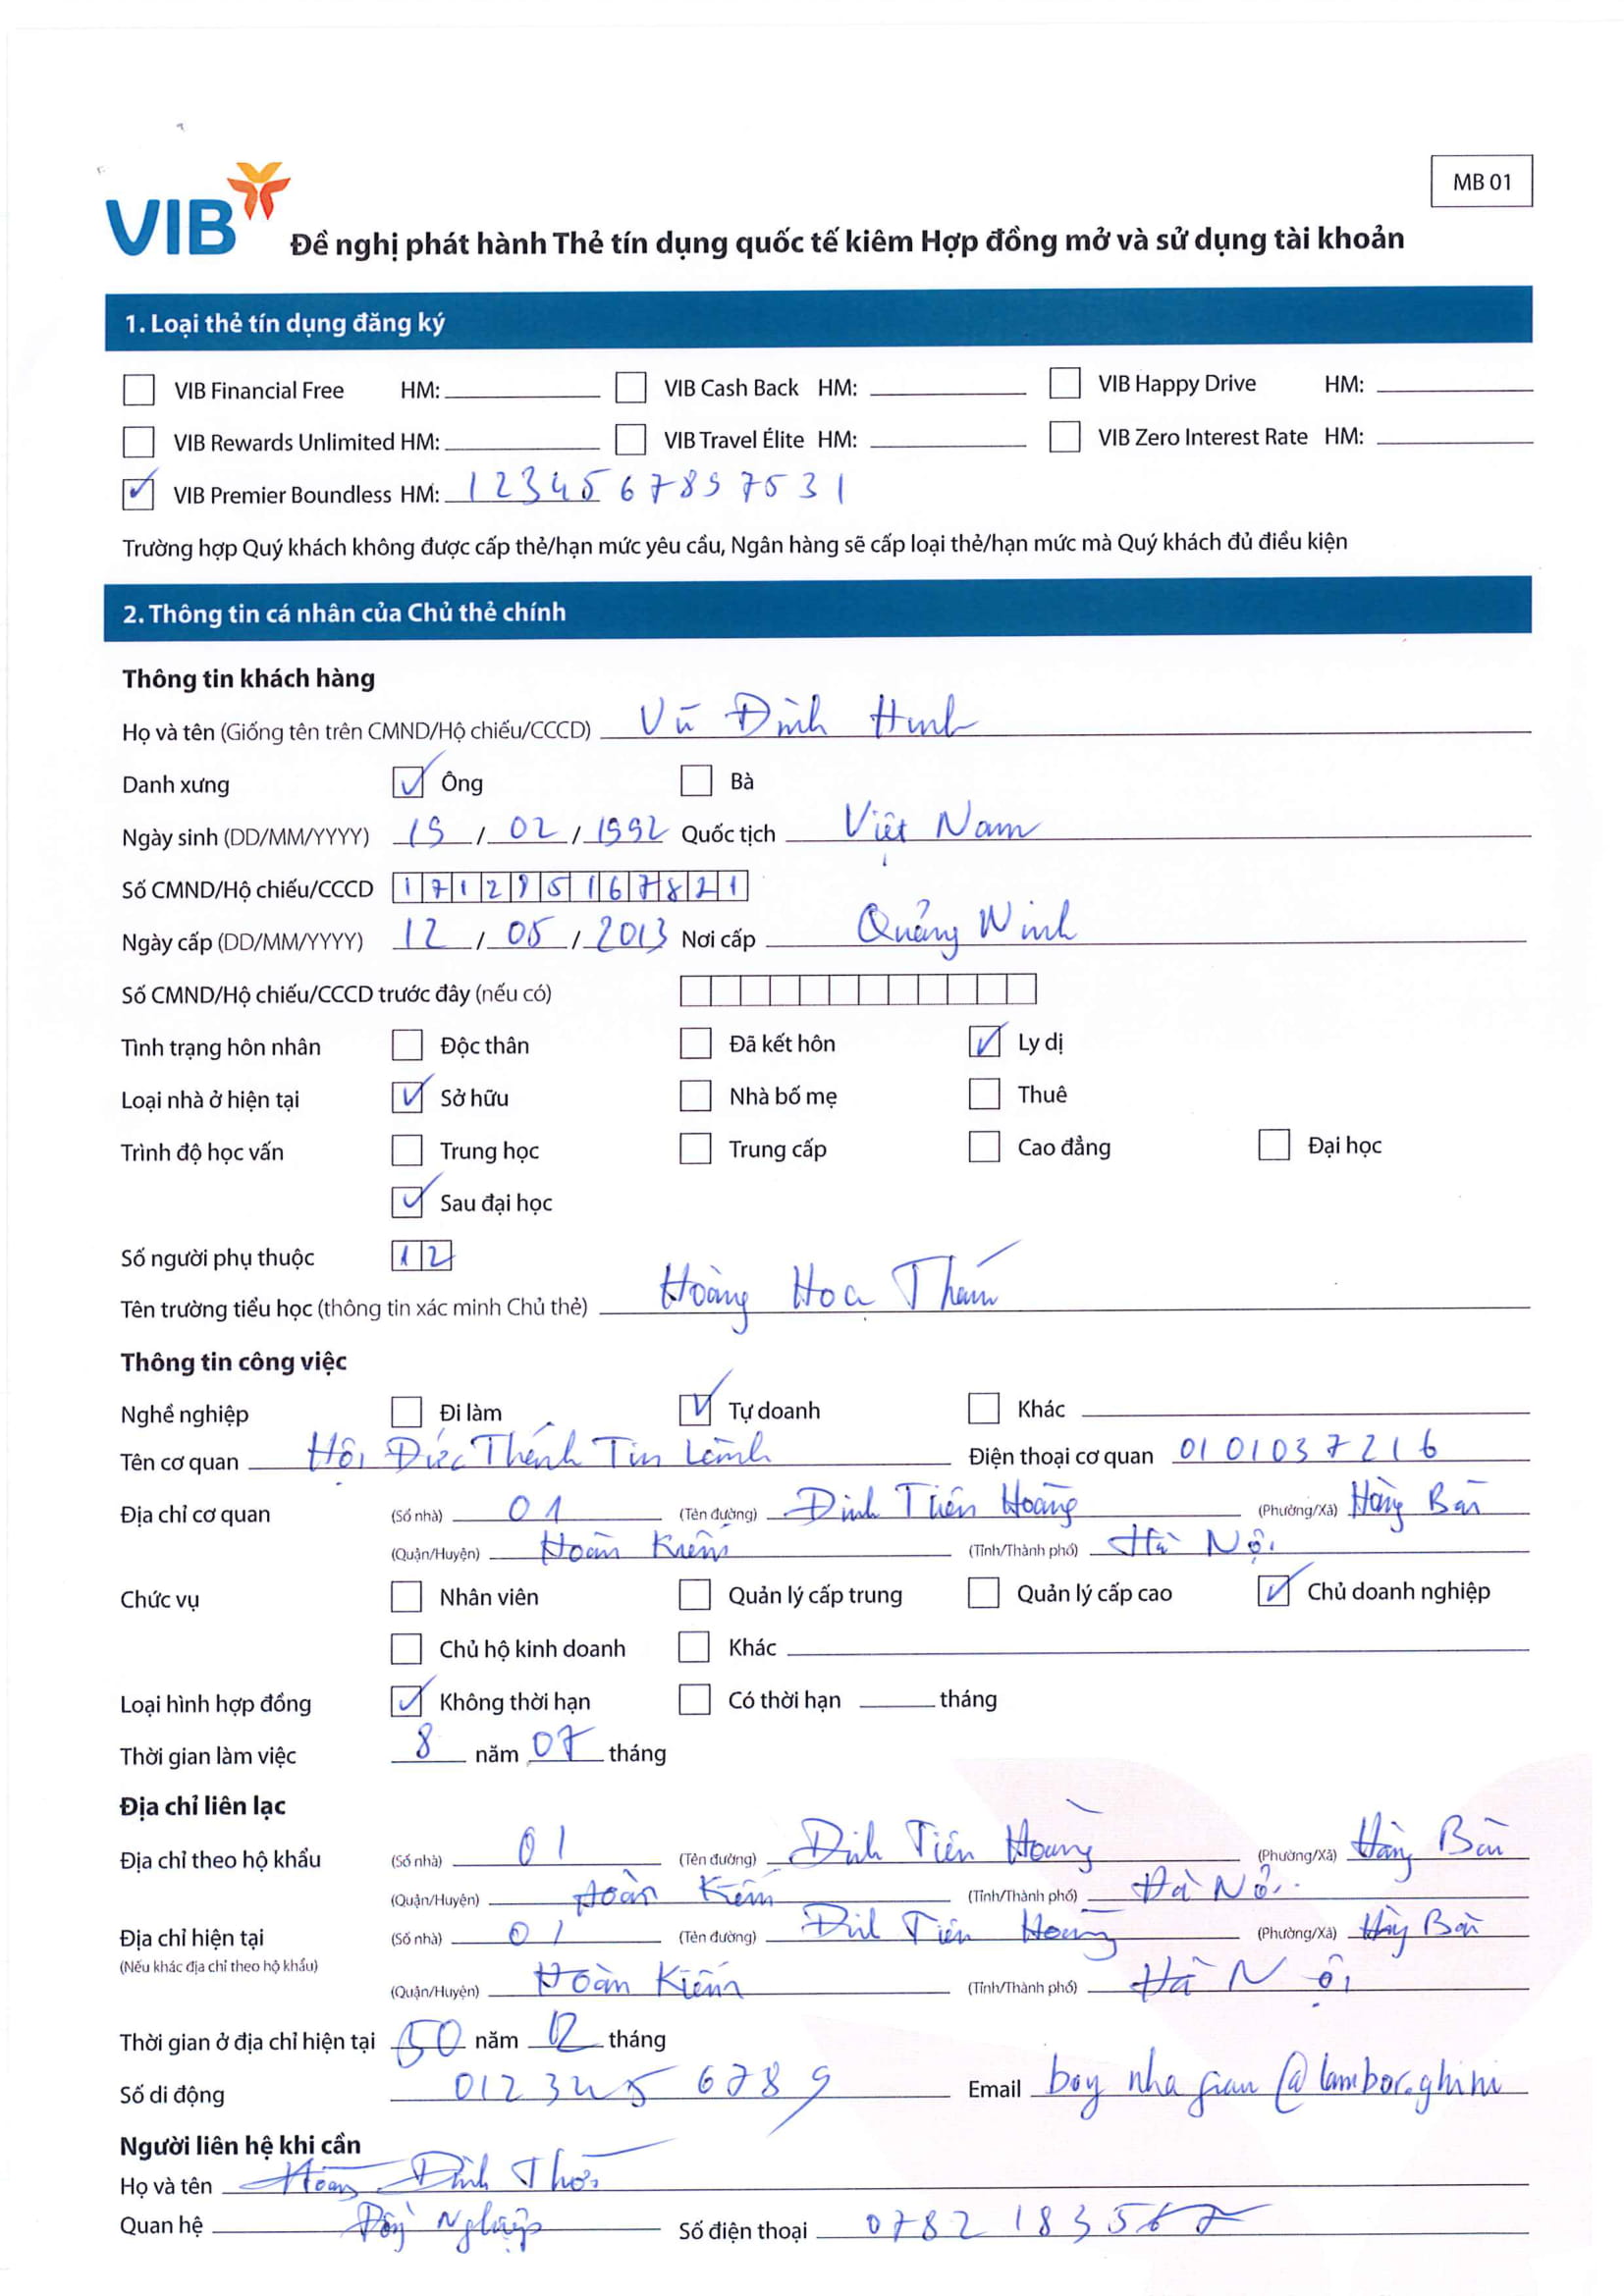 MB 01
VIB
Đề nghị phát hành Thẻ tín dụng quốc tế kiêm Hợp đồng mở và sử dụng tài khoản
1. Loại thẻ tín dụng đăng ký
VIB Financial Free HM: VIB Cash Back HM: VIB Happy Drive HM:
VIB Rewards Unlimited HM: VIB Travel Élite HM: VIB Zero Interest Rate HM:
VIB Premier Boundless HM: 1234567897531
Trường hợp Quý khách không được cấp thẻ/hạn mức yêu cầu, Ngân hàng sẽ cấp loại thẻ/hạn mức mà Quý khách đủ điều kiện
2. Thông tin cá nhân của Chủ thẻ chính
Thông tin khách hàng
Họ và tên (Giống tên trên CMND/Hộ chiếu/CCCD) Vũ Đình
Danh xưng Ông Bà
Ngày sinh (DD/MM/YYYY) 19 / 02 / 1992 Quốc tịch Việt Nam
Số CMND/Hộ chiếu/CCCD 171295167821
Ngày cấp (DD/MM/YYYY) 12 / 05 / 2013 Nơi cấp Quảng Ninh
Số CMND/Hộ chiếu/CCCD trước đây (nếu có)
Tình trạng hôn nhân Độc thân Đã kết hôn Ly dị
Loại nhà ở hiện tại Sở hữu Nhà bố mẹ Thuê
Trình độ học vấn Trung học Trung cấp Cao đẳng Đại học
Sau đại học
Số người phụ thuộc 12
Tên trường tiểu học (thông tin xác minh Chủ thẻ) Hoàng Hoa Thám
Thông tin công việc
Nghề nghiệp Đi làm Tự doanh Khác
Tên cơ quan Hội Đức Thánh Tin Lành Điện thoại cơ quan 0101037216
Địa chỉ cơ quan (Số nhà) 01 (Tên đường) Đinh Tiên Hoàng (Phường/Xã) Hàng Bài
(Quận/Huyện) Hoàn Kiếm (Tỉnh/Thành phố) Hà Nội
Chức vụ Nhân viên Quản lý cấp trung Quản lý cấp cao Chủ doanh nghiệp
Chủ hộ kinh doanh Khác
Loại hình hợp đồng Không thời hạn Có thời hạn tháng
Thời gian làm việc 8 năm 07 tháng
Địa chỉ liên lạc
Địa chỉ theo hộ khẩu (Số nhà) 01 (Tên đường) Đinh Tiên Hoàng (Phường/Xã) Hàng Bài
(Quận/Huyện) Hoàn Kiếm (Tỉnh/Thành phố) Hà Nội
Địa chỉ hiện tại (Số nhà) 01 (Tên đường) Đinh Tiên Hoàng (Phường/Xã) Hàng Bài
(Nếu khác địa chỉ theo hộ khẩu)
(Quận/Huyện) Hoàn Kiếm (Tỉnh/Thành phố) Hà Nội
Thời gian ở địa chỉ hiện tại 50 năm 12 tháng
Số di động 0123456789 Email boy nha gian@lambor.ghini
Người liên hệ khi cần
Họ và tên Đình
Quan hệ Đồng Nghiệp Số điện thoại 0782183567